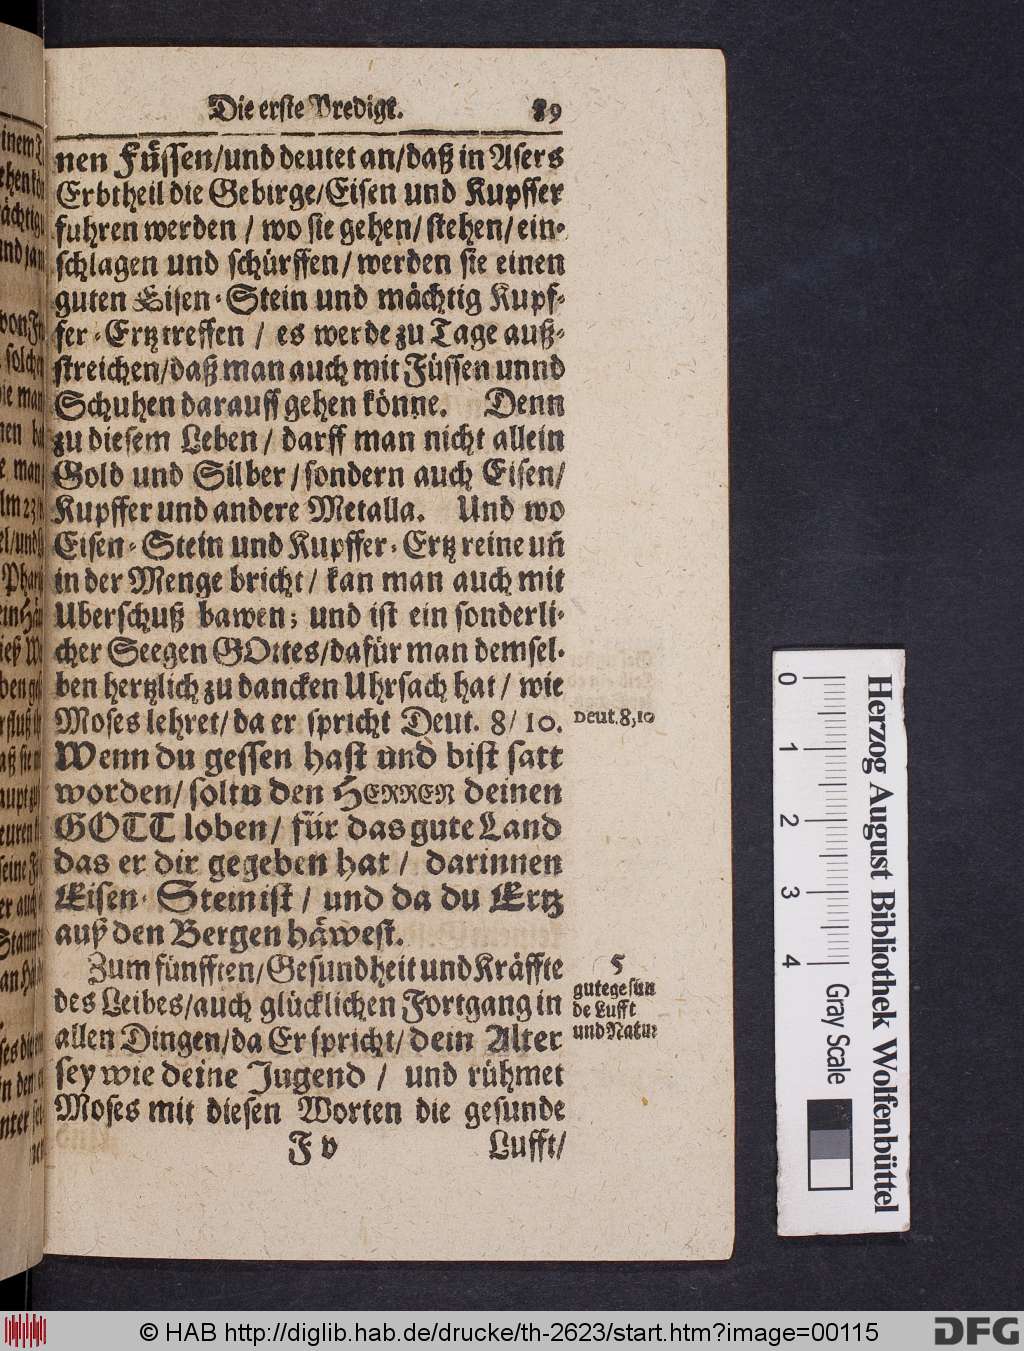 Die erste Predigt. 89
nen Füssen/und deutet an/daß in Asers
Erbtheil die Gebirge/Eisen und Kupffer
fuhren werden / wo sie gehen/ stehen/ ein-
schlagen und schürffen/ werden sie einen
guten Eisen-Stein und mächtig Kupf-
fer-Ertz treffen / es werde zu Tage auß-
streichen/daß man auch mit Füssen unnd
Schuhen darauff gehen könne. Denn
zu diesem Leben/ darff man nicht allein
Gold und Silber/sondern auch Eisen/
Kupffer und andere Metalla. Und wo
Eisen-Stein und Kupffer-Ertz reine uñ
in der Menge bricht/ kan man auch mit
Uberschuß bawen; und ist ein sonderli-
cher Seegen GOttes/dafür man demsel-
ben hertzlich zu dancken Uhrsach hat/ wie
Moses lehret/da er spricht Deut. 8/10.
Deut.8,10
Wenn du gessen hast und bist satt
worden/ soltu den HERREN deinen
GOTT loben/ für das gute Land
das er dir gegeben hat/ darinnen
Eisen-Stein ist/ und da du Ertz
auß den Bergen häwest.
Zum fünfften/Gesundheit und Kräffte
5
gute gesun
de Lufft
und Natur
des Leibes/auch glücklichen Fortgang in
allen Dingen/da Er spricht/ dein Alter
sey wie deine Jugend / und rühmet
Moses mit diesen Worten die gesunde
F v Lufft/
0
1
2
3
4
Gray Scale
Herzog August Bibliothek Wolfenbüttel
© HAB http://diglib.hab.de/drucke/th-2623/start.htm?image=00115
DFG